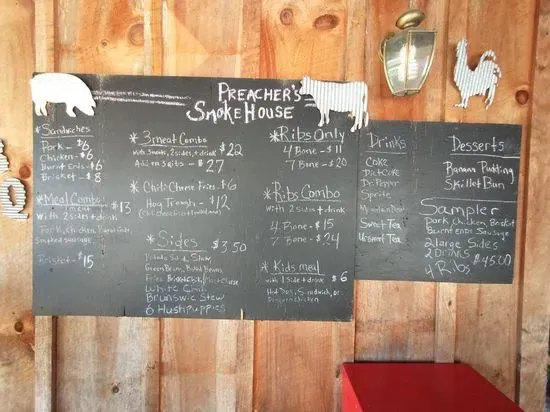 PREACHER'S
SMOKE HOUSE
*Sandwiches
Pork - $6
Chicken - $6
Burnt Ends - $6
Brisket - $8
*Meal Combo
1 meat
$13
With 2 sides + drink
Pork, Chicken, Burnt Ends
Smoked sausage
Brisket - $15
*3 meat Combo
with 3 meats, 2 sides, + drink $22
Add on 3 ribs - $27
*Chili Cheese Fries $6
Hog Trough - $12
*Sides $3.50
Potato Salad, Slaw,
Green Beans, Baked Beans,
Fries,
White Chili
Brunswic Stew
6 Hushpuppies
*Ribs Only
4 Bone - $11
7 Bone - $20
*Ribs Combo
With 2 sides + drink
4 Bone - $15
7 Bone - $24
*Kids meal
with 1 side + drink $6
Hot Dog, Sandwich, or
Drinks
Coke
Diet Coke
Dr. Pepper
Sprite
Mountain Dew
Sweet Tea
Unsweet Tea
Desserts
Banana Pudding
Skillet Bun
Sampler
Pork Chicken Brisket
Burnt ends Sausage
2 large Sides
2 DRINKS
4 Ribs
$45.00